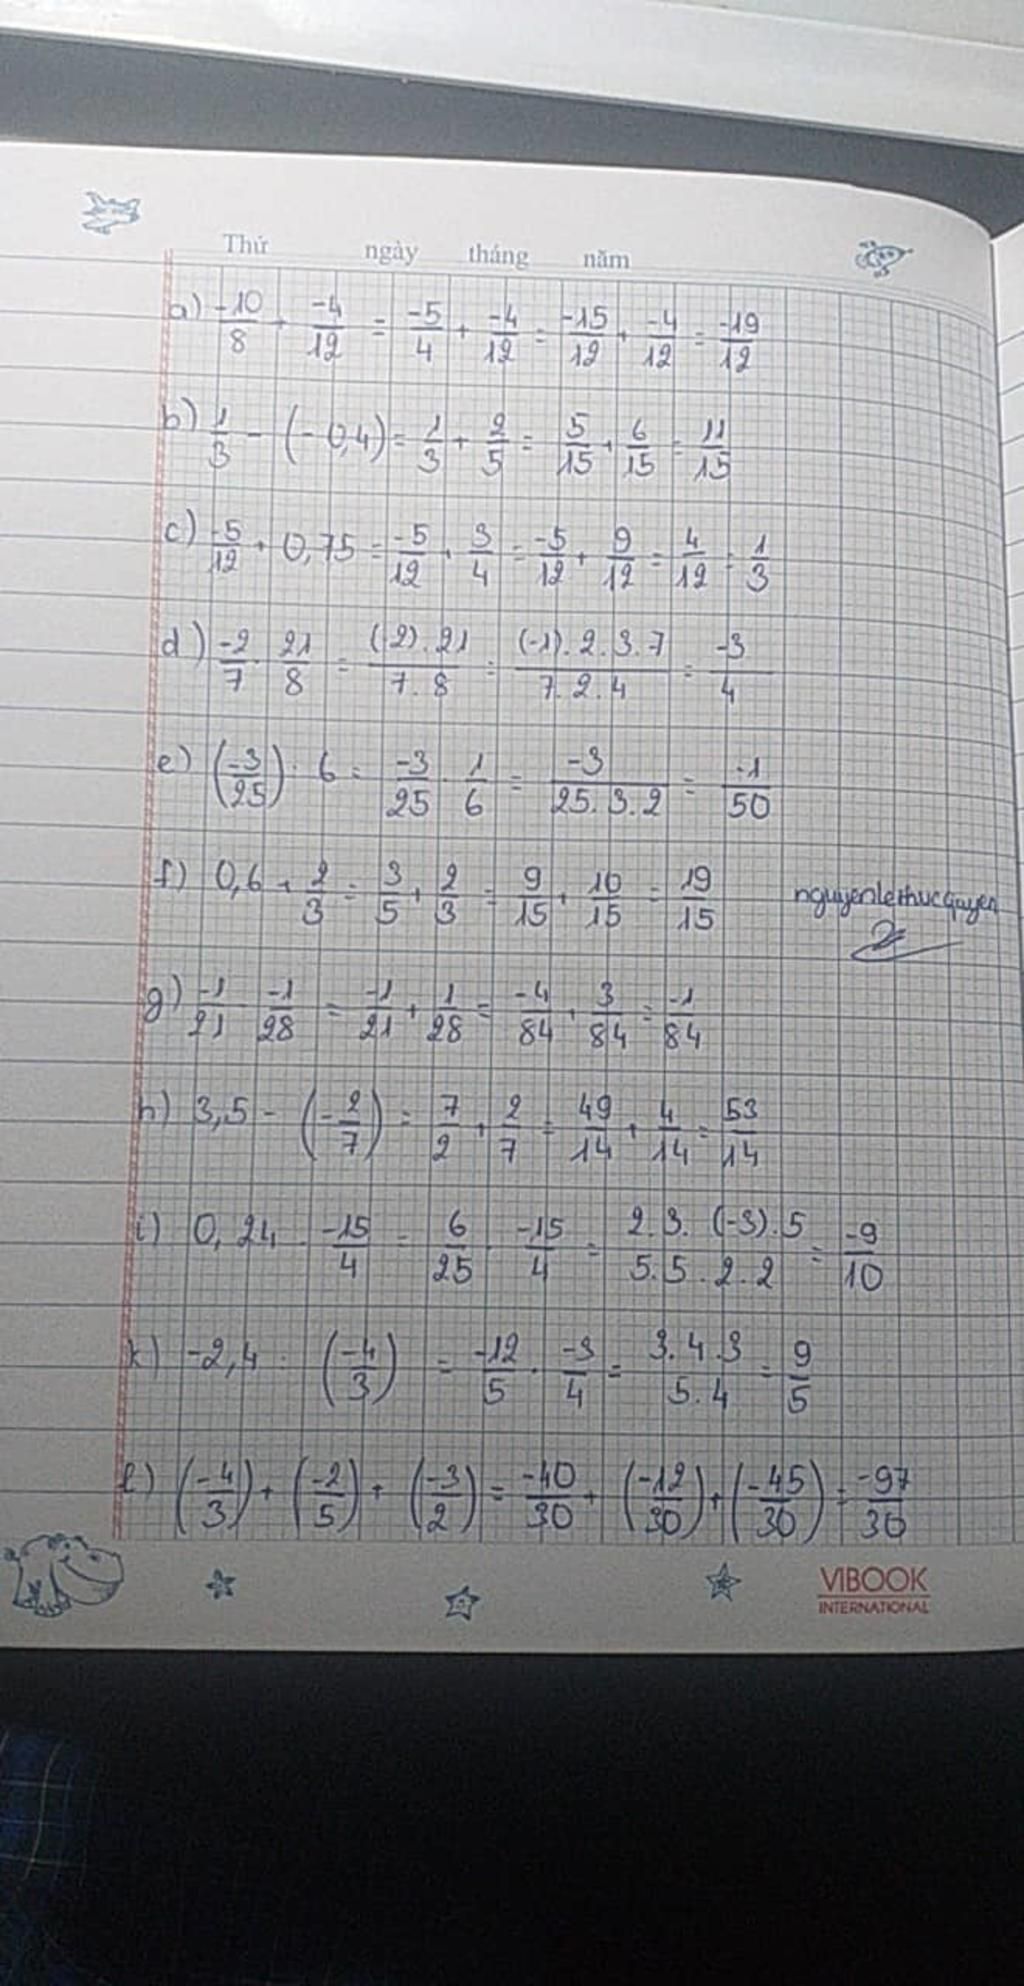 Thứ ngày tháng năm
a) -10/8 + -4/12 = -5/4 + -4/12 = -15/12 + -4/12 = -19/12
b) 1/3 - (-0,4) = 1/3 + 2/5 = 5/15 + 6/15 = 11/15
c) -5/12 + 0,75 = -5/12 + 3/4 = -5/12 + 9/12 = 4/12 = 1/3
d) -2/7 . 21/8 = (-2).21/7.8 = (-1).2.3.7/7.2.4 = -3/4
e) (-3/25) : 6 = -3/25 . 1/6 = -3/25.3.2 = -1/50
f) 0,6 + 2/3 = 3/5 + 2/3 = 9/15 + 10/15 = 19/15
nguyenlethucquyen
g) -1/21 - -1/28 = -1/21 + 1/28 = -4/84 + 3/84 = -1/84
h) 3,5 - (-2/7) = 7/2 + 2/7 = 49/14 + 4/14 = 53/14
i) 0,24 . -15/4 = 6/25 . -15/4 = 2.3.(-3).5/5.5.2.2 = -9/10
k) -2,4 : (-4/3) = -12/5 . -3/4 = 3.4.3/5.4 = 9/5
l) (-4/3) + (-2/5) + (-3/2) = -40/30 + (-12/30) + (-45/30) = -97/30
VIBOOK
INTERNATIONAL